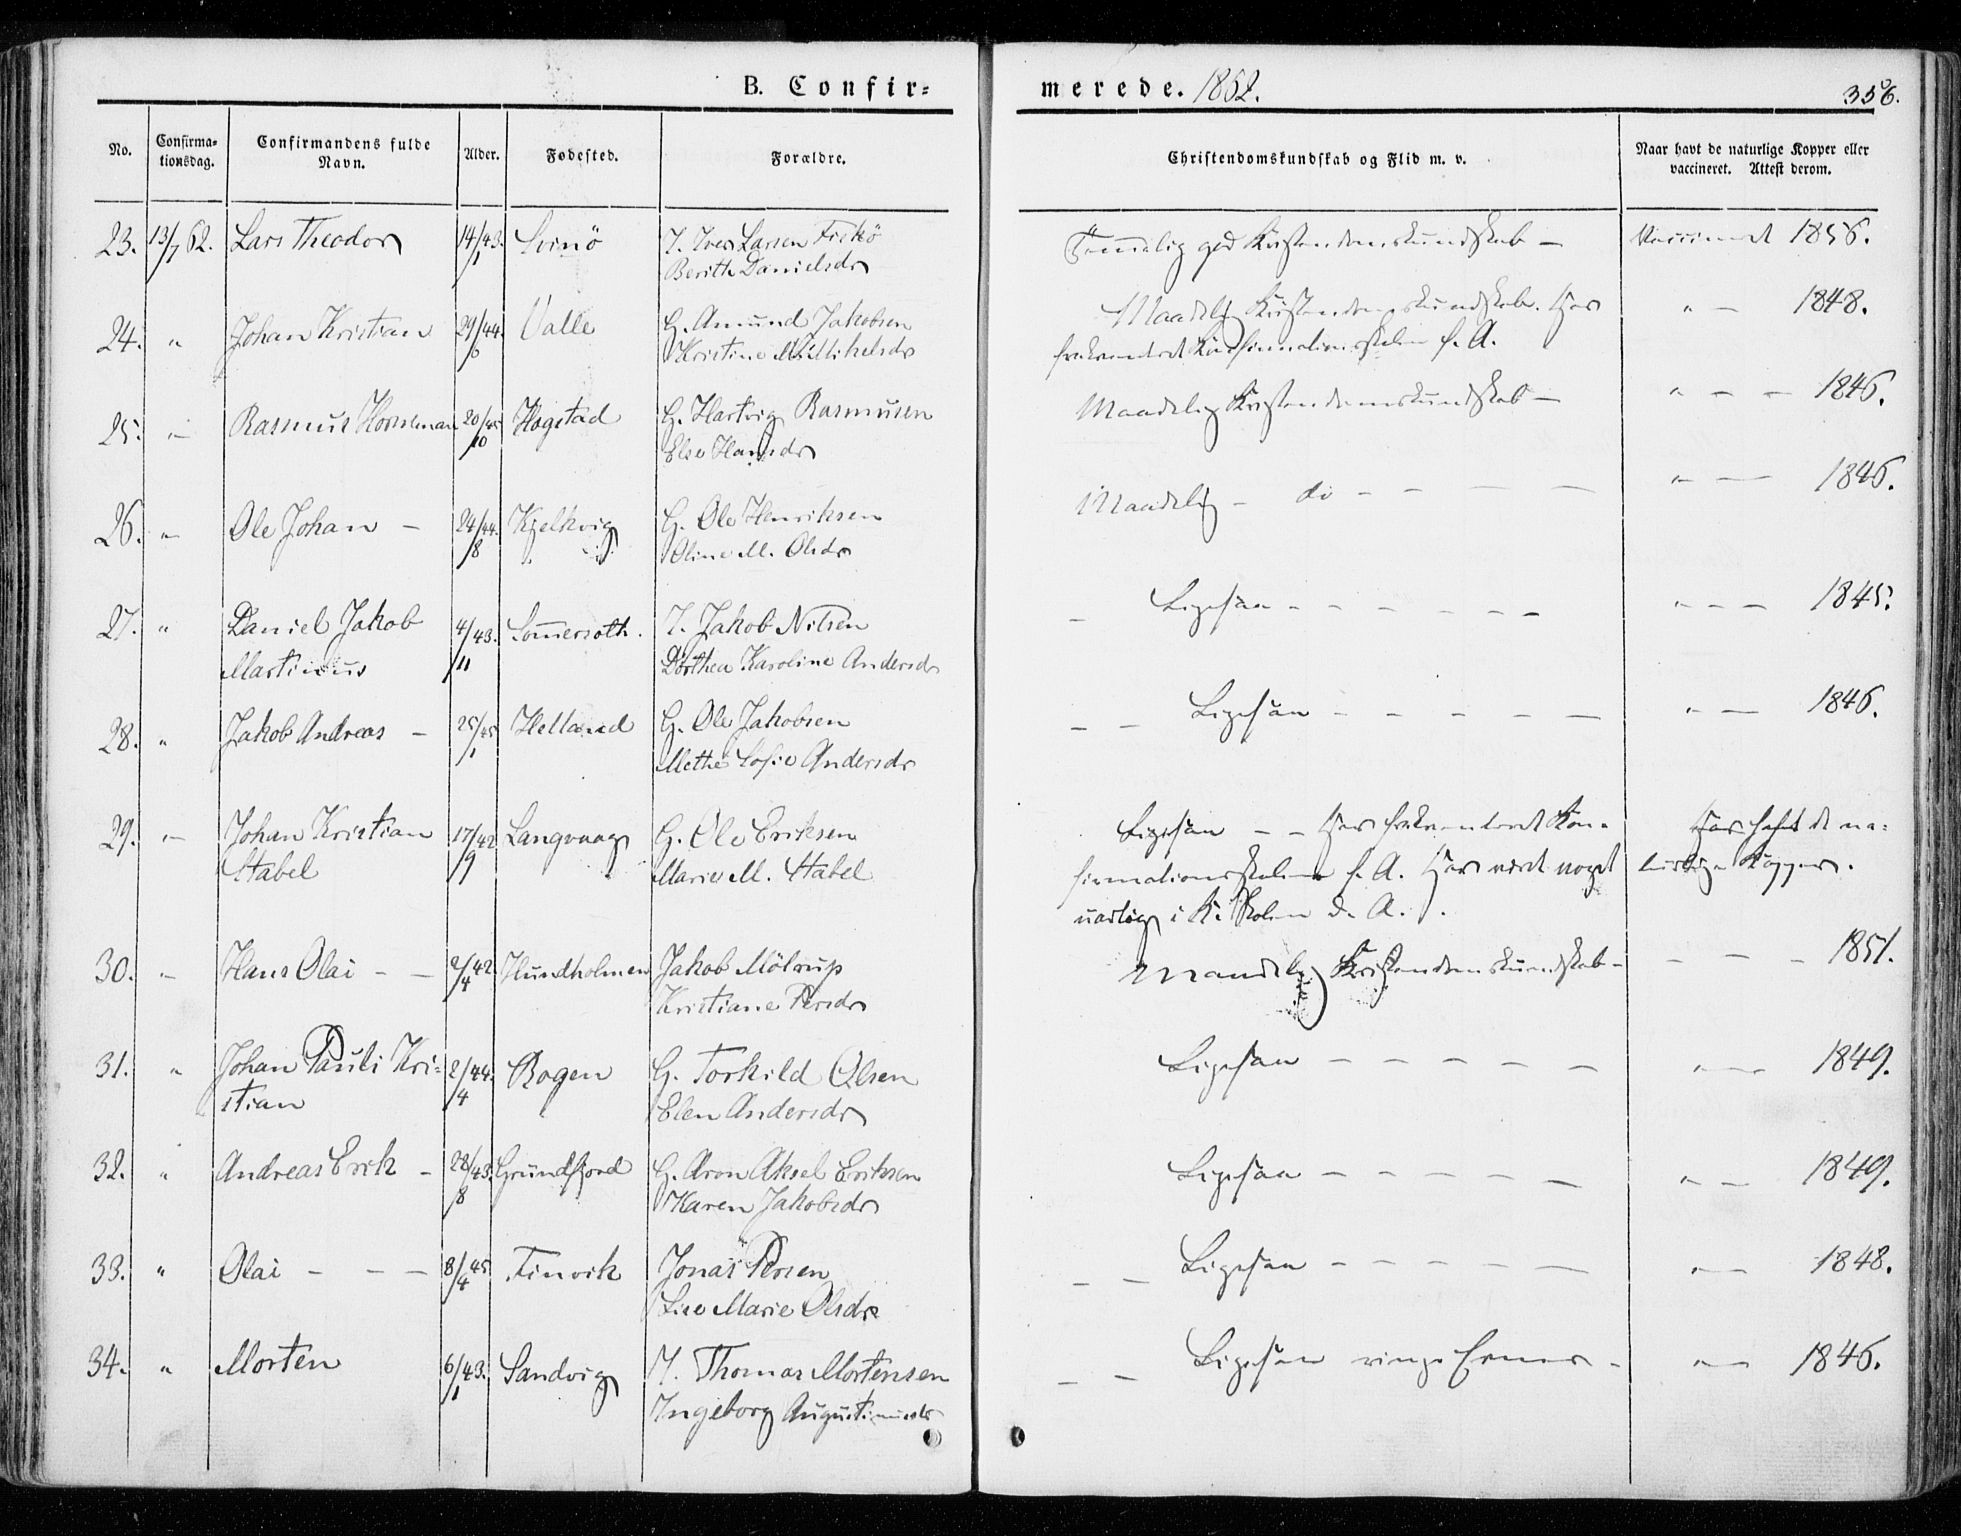 B. Confir=
merede. 1862.
356.
No.
Confirma=
tionsdag.
Confirmandens fulde
Navn.
Alder.
Fødested.
Forældre.
Christendomskundskab og Flid m. v.
Naar havt de naturlige Kopper eller
vaccineret. Attest derom.
23. 13/7 62. Lars Theodor 14/1 43. Svinö I. Iver Larsen Fiskö
Berith Danielsdr
Temmelig god Kristendomskundskab — Vaccineret 1856.
24. " Johan Kristian 29/6 44. Valle G. Amund Jakobsen
Kristine M. Mikelsdr
Maadelig Kristendomskundskab. Har " — 1848.
frekventeret Konfirmationsskolen f. A.
25. " Rasmus Horneman 20/10 45 Hogstad G. Hartvig Rasmusen
Else Hansdr
Maadelig Kristendomskundskab — " — — 1846.
26. " Ole Johan — 24/8 44. Kjelkvig G. Ole Henriksen
Oline M. Olsdr
Maadelig — do — — — — " — 1846.
27. " Daniel Jakob 4/11 43. Sommerseth. I. Jakob Nilsen
Martinus Dorthea Karoline Andersdr
— Ligesaa — — — — — — " — — 1845.
28. " Jakob Andreas — 25/1 45 Helland G. Ole Jakobsen
Methe Sofie Andersdr
— — Ligesaa — — — — — " — 1846.
29. " Johan Kristian 17/9 42 Langvaag G. Ole Eriksen
Stabel Marie M. Stabel
Ligesaa — — Har frekventeret Kon= Har haft de na=
firmationsskolen f. A. Har været noget turlige Kopper.
uartig i K. Skolen d. A.
30. " Hans Olai — — 2/4 42. Hundholmen Jakob Mölrup
Kristiane Persdr
Maadelig Kristendomskundskab — — — — 1851.
31. " Johan Pauli Kri= 2/4 44. Bogen G. Torkild Olsen
stian Elen Andersdr
Ligesaa — — — — — " — 1849.
32. " Andreas Erik — 28/8 43. Grundfjord G. Aron Aksel Eriksen
Karen Jakobsdr
Ligesaa — — — — — " — 1849.
33. " Olai — — — 8/4 45 Finvik Jonas Persen
Lise Marie Olsdr
— — Ligesaa — — — — — " — 1848.
34. " Morten 6/1 43. Sandvig I. Thomas Mortensen
Ingeborg Augustinusdr
— — Ligesaa ringe Evner — " — 1846.